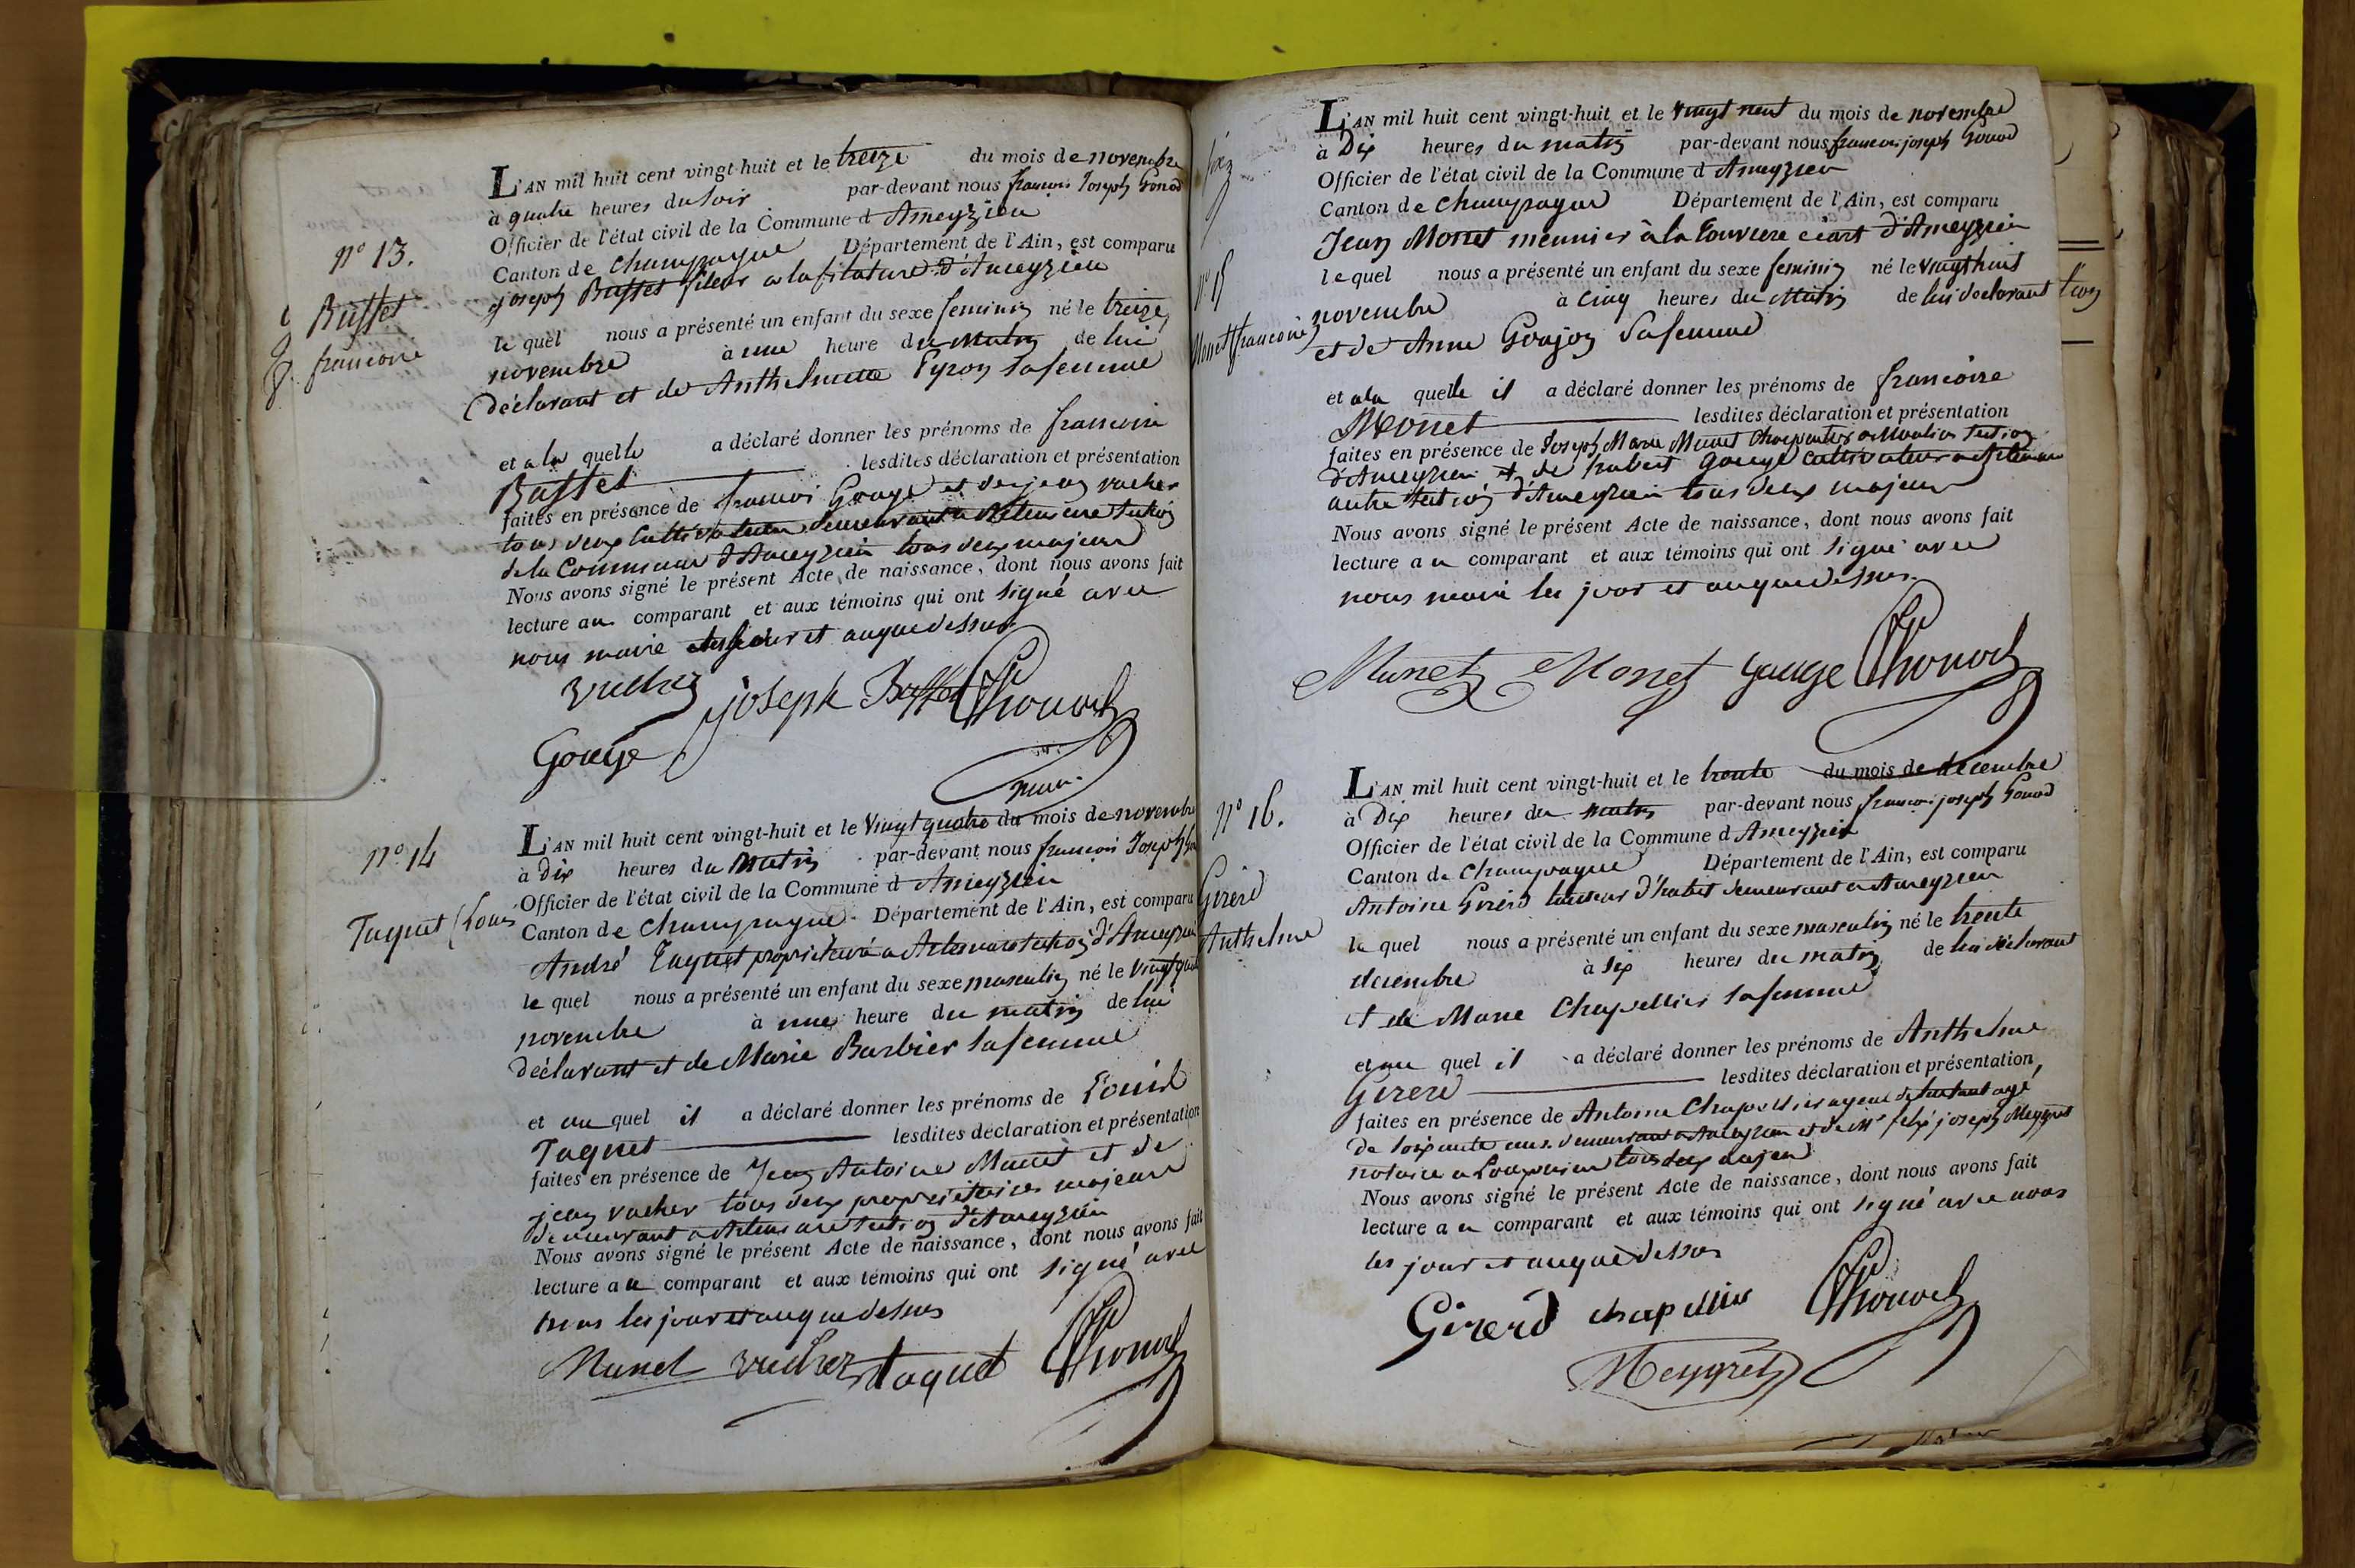 n° 13.
Buffet
francoise
L'AN mil huit cent vingt-huit et le treize du mois de novembre
à quatre heures du soir par-devant nous francois Joseph Gonod
Officier de l'état civil de la Commune d'Ameyzieu
Canton de Champagne Département de l'Ain, est comparu
joseph Buffet fileur a la filature d'Ameyzieu
le quel nous a présenté un enfant du sexe feminin né le treize
novembre à une heure du matin de lui
déclarant et de Anthelmette Pyron sa femme
et a la quelle a déclaré donner les prénoms de francoise
Buffet lesdites déclaration et présentation
faites en présence de francois Gouge et de jean vucher
tous deux Cultivateurs demeurant a section
de la Commune d'Ameyzieu tous deux majeurs
Nous avons signé le présent Acte de naissance, dont nous avons fait
lecture au comparant et aux témoins qui ont signé avec
nous maire les jour et an que dessus
vucher joseph Buffet Gonod
Gouge
maire
n° 14
Taquet (Louis
L'AN mil huit cent vingt-huit et le vingt quatre du mois de novembre
à dix heures du matin par-devant nous francois Joseph
Officier de l'état civil de la Commune d'Ameyzieu
Canton de Champagne Département de l'Ain, est comparu
André Taquet propriétaire a section d'Ameyzieu
le quel nous a présenté un enfant du sexe masculin né le vingt quatre
novembre à une heure du matin de lui
déclarant et de Marie Barbier sa femme
et au quel il a déclaré donner les prénoms de Louis
Taquet lesdites déclaration et présentation
faites en présence de Jean Antoine Munet et de
jean vucher tous deux propriétaires majeurs
demeurant a section d'Ameyzieu
Nous avons signé le présent Acte de naissance, dont nous avons fait
lecture au comparant et aux témoins qui ont signé avec
nous les jour et an que dessus
Munet vucher taquet Gonod
n° 15
Monet (francoise)
L'AN mil huit cent vingt-huit et le vingt neuf du mois de novembre
à Dix heures du matin par-devant nous francois joseph Gonod
Officier de l'état civil de la Commune d'Ameyzieu
Canton de Champagne Département de l'Ain, est comparu
Jean Monet meunier à la Louviere écart d'Ameyzieu
le quel nous a présenté un enfant du sexe feminin né le vingt huit
novembre à cinq heures du Matin de lui declarant
et de Anne Goujon sa femme
et a la quelle il a déclaré donner les prénoms de francoise
Monet lesdites déclaration et présentation
faites en présence de Joseph Marie Munet charpentier section
d'Ameyzieu et de hubert Gouge cultivateur
autre section d'Ameyzieu tous deux majeurs
Nous avons signé le présent Acte de naissance, dont nous avons fait
lecture au comparant et aux témoins qui ont signé avec
nous maire les jour et an que dessus.
Munet Monet Gouge Gonod
n° 16.
Girerd
Anthelme
L'AN mil huit cent vingt-huit et le trente du mois de decembre
à Dix heures du matin par-devant nous francois joseph Gonod
Officier de l'état civil de la Commune d'Ameyzieu
Canton de Champagne Département de l'Ain, est comparu
Antoine Girerd tailleur d'habit demeurant a Ameyzieu
le quel nous a présenté un enfant du sexe masculin né le trente
decembre à six heures du matin de lui déclarant
et de Marie Chapellier sa femme
et au quel il a déclaré donner les prénoms de Anthelme
Girerd lesdites déclaration et présentation
faites en présence de Antoine Chapellier ayeul de l'enfant agé
de soixante ans demeurant a Ameyzieu et de Mr felix joseph Meygret
notaire a tous deux majeurs
Nous avons signé le présent Acte de naissance, dont nous avons fait
lecture au comparant et aux témoins qui ont signé avec nous
les jour et an que dessus
Girerd chapellier Gonod
Meygret